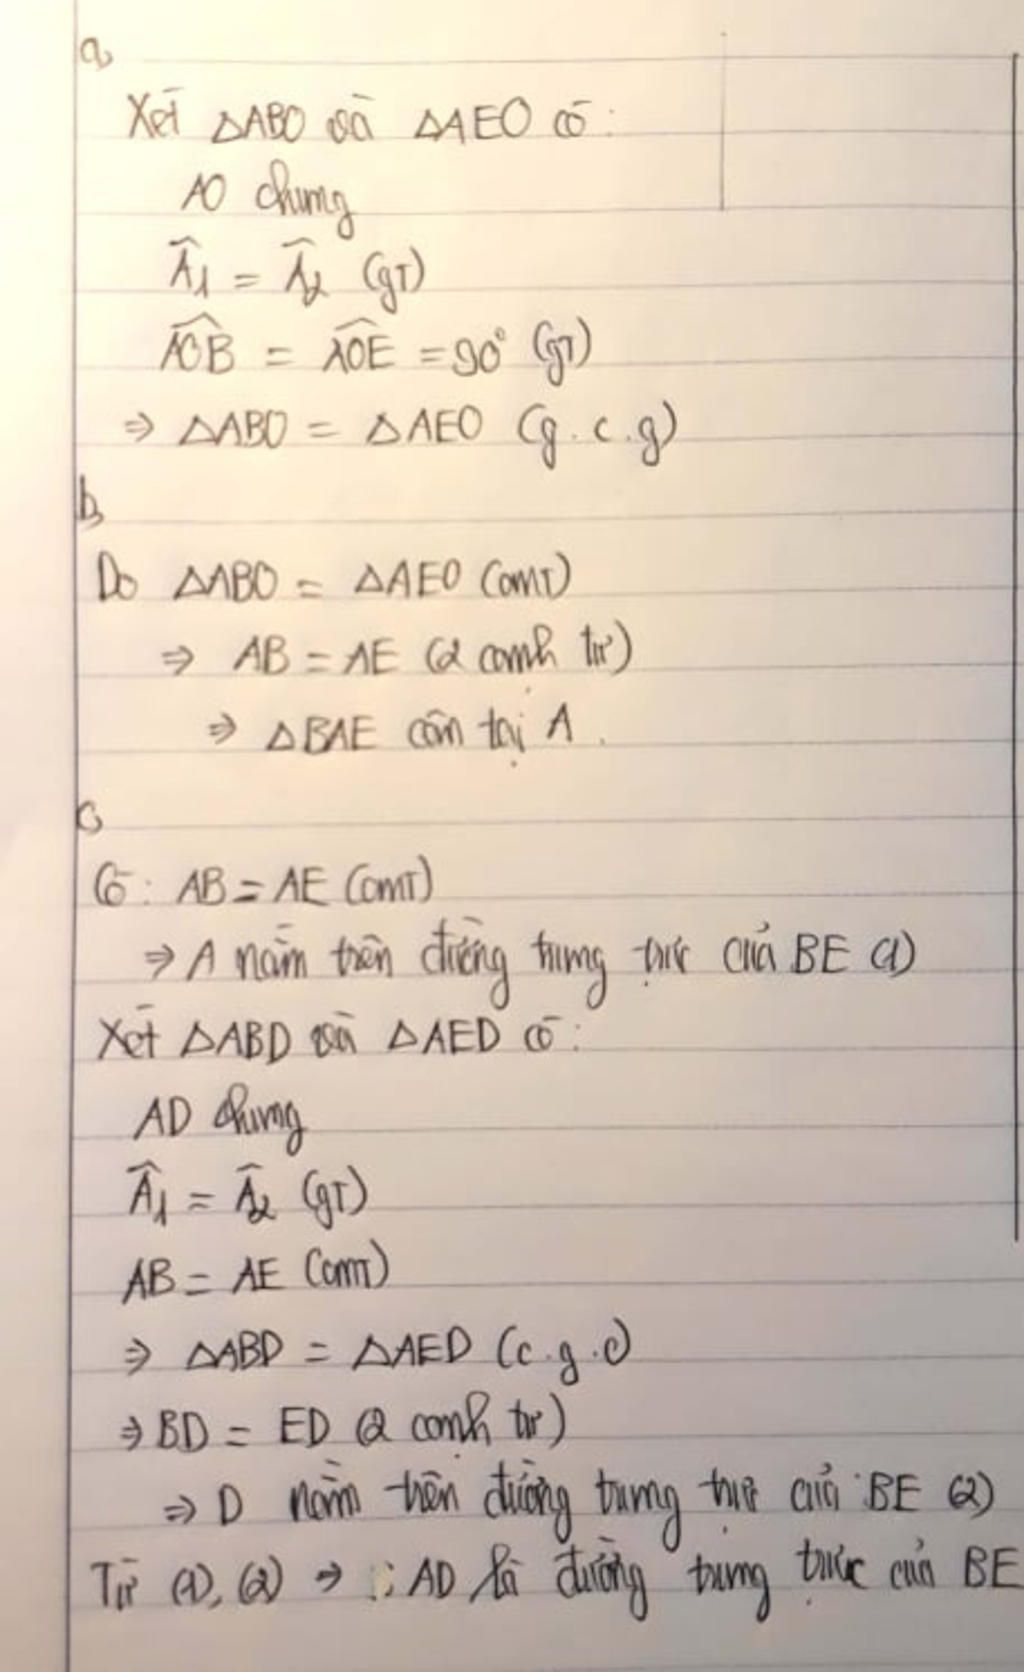 a,
Xét △ABO và △AEO có:
AO chung
Â₁ = Â₂ (gT)
AOB = AOE = 90° (gT)
⇒ △ABO = △AEO (g.c.g)
b,
Do △ABO = △AEO (cmT)
⇒ AB = AE (2 cạnh tư)
⇒ △BAE cân tại A.
c,
Có: AB = AE (cmT)
⇒ A nằm trên đường trung trực của BE (1)
Xét △ABD và △AED có:
AD chung
Â₁ = Â₂ (gT)
AB = AE (cmT)
⇒ △ABD = △AED (c.g.c)
⇒ BD = ED (2 cạnh tư)
⇒ D nằm trên đường trung trực của BE (2)
Từ (1), (2) ⇒ : AD là đường trung trực của BE